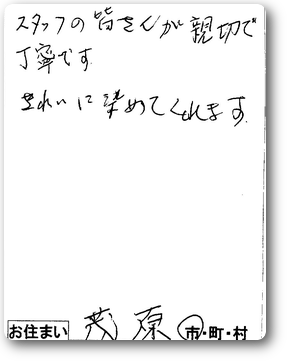 スタッフの皆さんが親切で
丁寧です。
きれいに染めてくれます。
お住まい 茂原 市・町・村